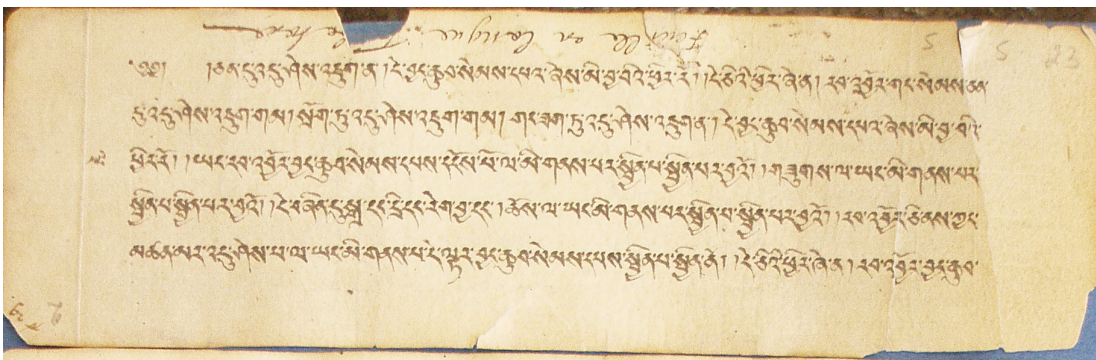 5 5 23
༄༅། །ཅན་དུ་འདུ་ཤེས་འཇུག་ན། དེ་བྱང་ཆུབ་སེམས་དཔའ་ཞེས་མི་བྱ་བའི་ཕྱིར་རོ། །དེ་ཅིའི་ཕྱིར་ཞེ་ན། རབ་འབྱོར་གང་སེམས་ཅན་
དུ་འདུ་ཤེས་འཇུག་གམ། སྲོག་ཏུ་འདུ་ཤེས་འཇུག་གམ། གང་ཟག་ཏུ་འདུ་ཤེས་འཇུག་ན། དེ་བྱང་ཆུབ་སེམས་དཔའ་ཞེས་མི་བྱ་བའི་
ཕྱིར་རོ། །ཡང་རབ་འབྱོར་བྱང་ཆུབ་སེམས་དཔས་དངོས་པོ་ལ་མི་གནས་པར་སྦྱིན་པ་སྦྱིན་པར་བྱའོ། །གཟུགས་ལ་ཡང་མི་གནས་པར་
སྦྱིན་པ་སྦྱིན་པར་བྱའོ། །དེ་བཞིན་དུ་སྒྲ་དང་དྲི་དང་རེག་བྱ་དང་། ཆོས་ལ་ཡང་མི་གནས་པར་སྦྱིན་པ་སྦྱིན་པར་བྱའོ། །རབ་འབྱོར་ཅི་ནས་ཀྱང་
མཚན་མར་འདུ་ཤེས་པ་ལ་ཡང་མི་གནས་པ་དེ་ལྟར་བྱང་ཆུབ་སེམས་དཔས་སྦྱིན་པ་སྦྱིན་ནོ། །དེ་ཅིའི་ཕྱིར་ཞེ་ན། རབ་འབྱོར་བྱང་ཆུབ་